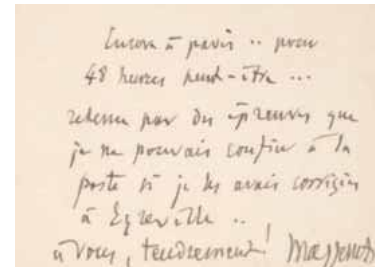 Encore à paris .. pour
48 heures peut-être ...
retenu par des épreuves que
je ne pouvais confier à la
poste si je les avais corrigées
à Egreville ..
à vous, tendrement ! Massenet